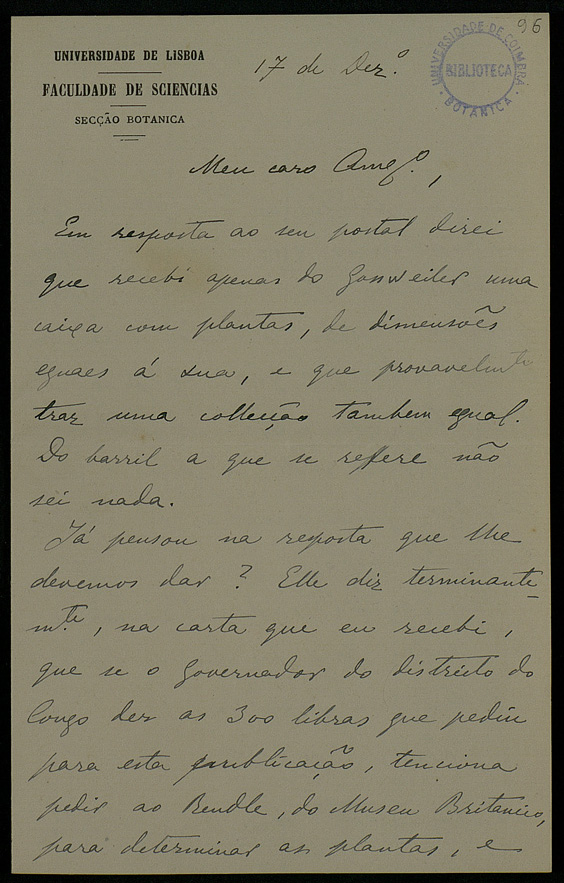 96
UNIVERSIDADE DE LISBOA
FACULDADE DE SCIENCIAS
SECÇÃO BOTANICA
UNIVERSIDADE DE COIMBRA
BIBLIOTECA
BOTANICA
17 de Dez.º
Meu caro Amg.º,
Em resposta ao seu postal direi
que recebi apenas do Gossweiler uma
caixa com plantas, de dimensões
eguaes á sua, e que provavelmte
traz uma collecção tambem egual.
Do barril a que se refere não
sei nada.
Já pensou na resposta que lhe
devemos dar? Elle diz terminante-
m.te, na carta que eu recebi,
que se o Governador do districto do
Congo der as 300 libras que pediu
para esta publicação, tenciona
pedir ao Rendle, do Museu Britanico,
para determinar as plantas, e